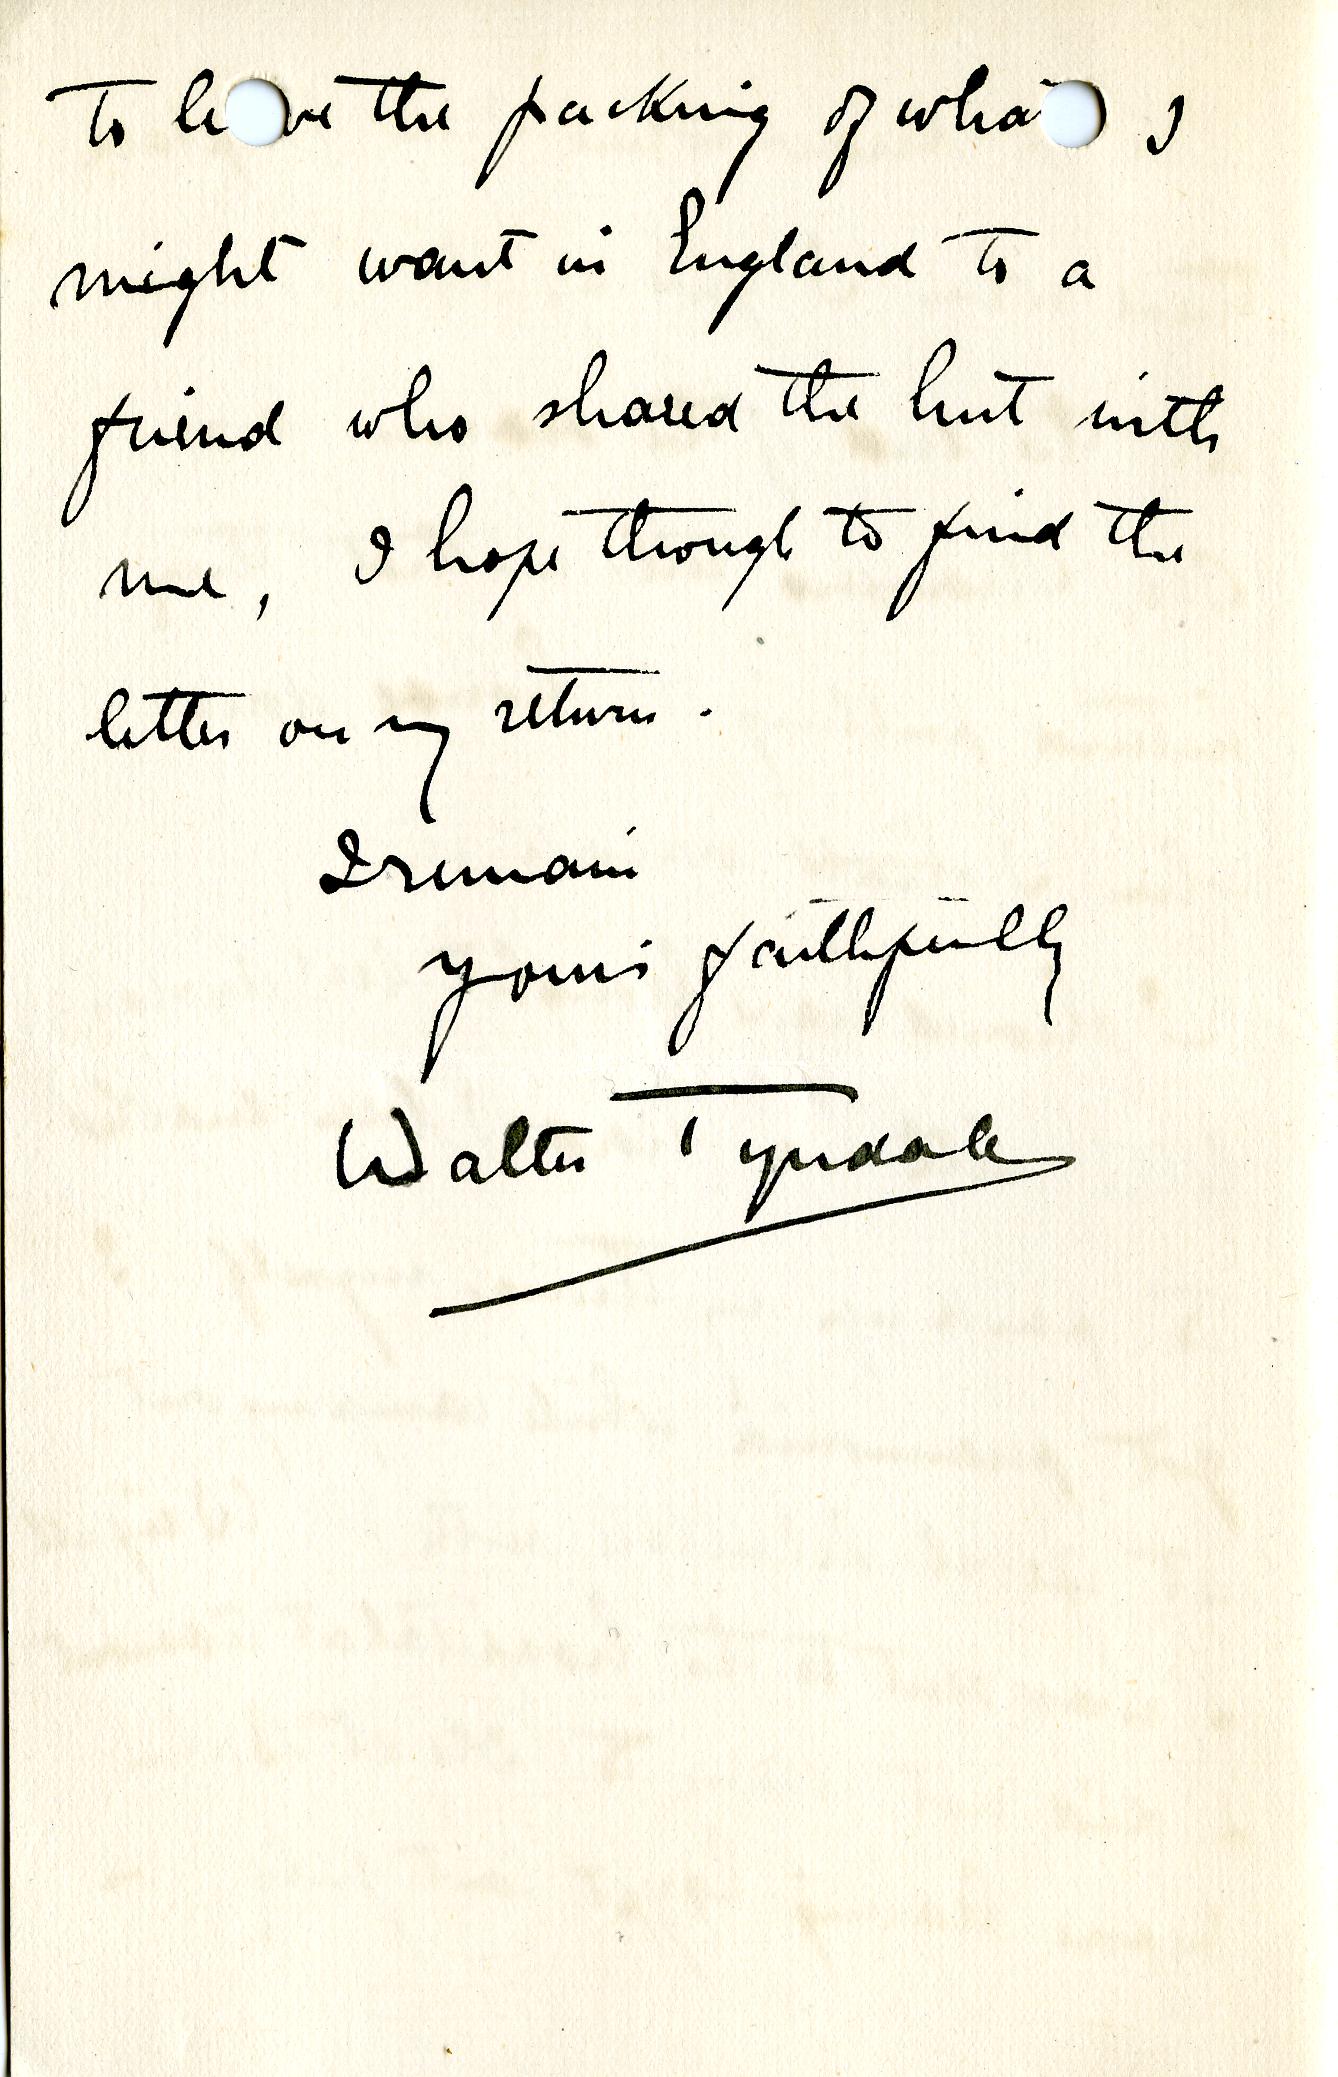 to leave the packing of what I
might want in England to a
friend who shared the hut with
me, I hope though to find the
letter on my return.
I remain
yours faithfully
Walter Tyndale